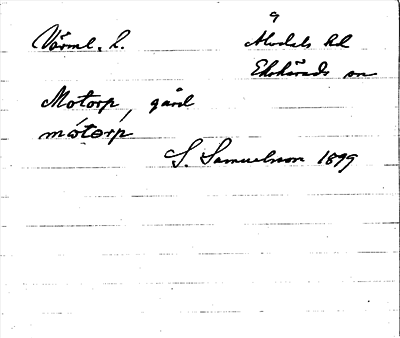 Värml. l.
Älvdals hd
Ekshärads sn
Motorp, gård
mòtərp
S. Samuelsson 1899